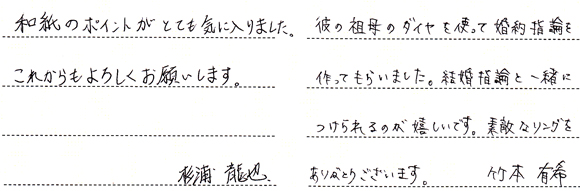 和紙のポイントがとても気に入りました。
これからもよろしくお願いします。
杉浦 龍也
彼の祖母のダイヤを使って婚約指論を
作ってもらいました。結婚指論と一緒に
つけられるのが嬉しいです。素敵なリングを
ありがとうございます。 竹本 有希